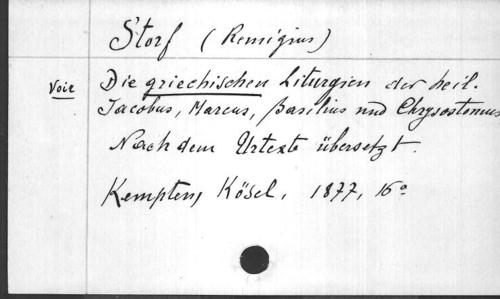 Storf (Remigius)
Voir Die griechischen Liturgien der heil.
Jacobus, Marcus, Basilius und Chrysostomus
Nach dem Urtexte übersetzt.
Kempten, Kösel, 1877, 16°